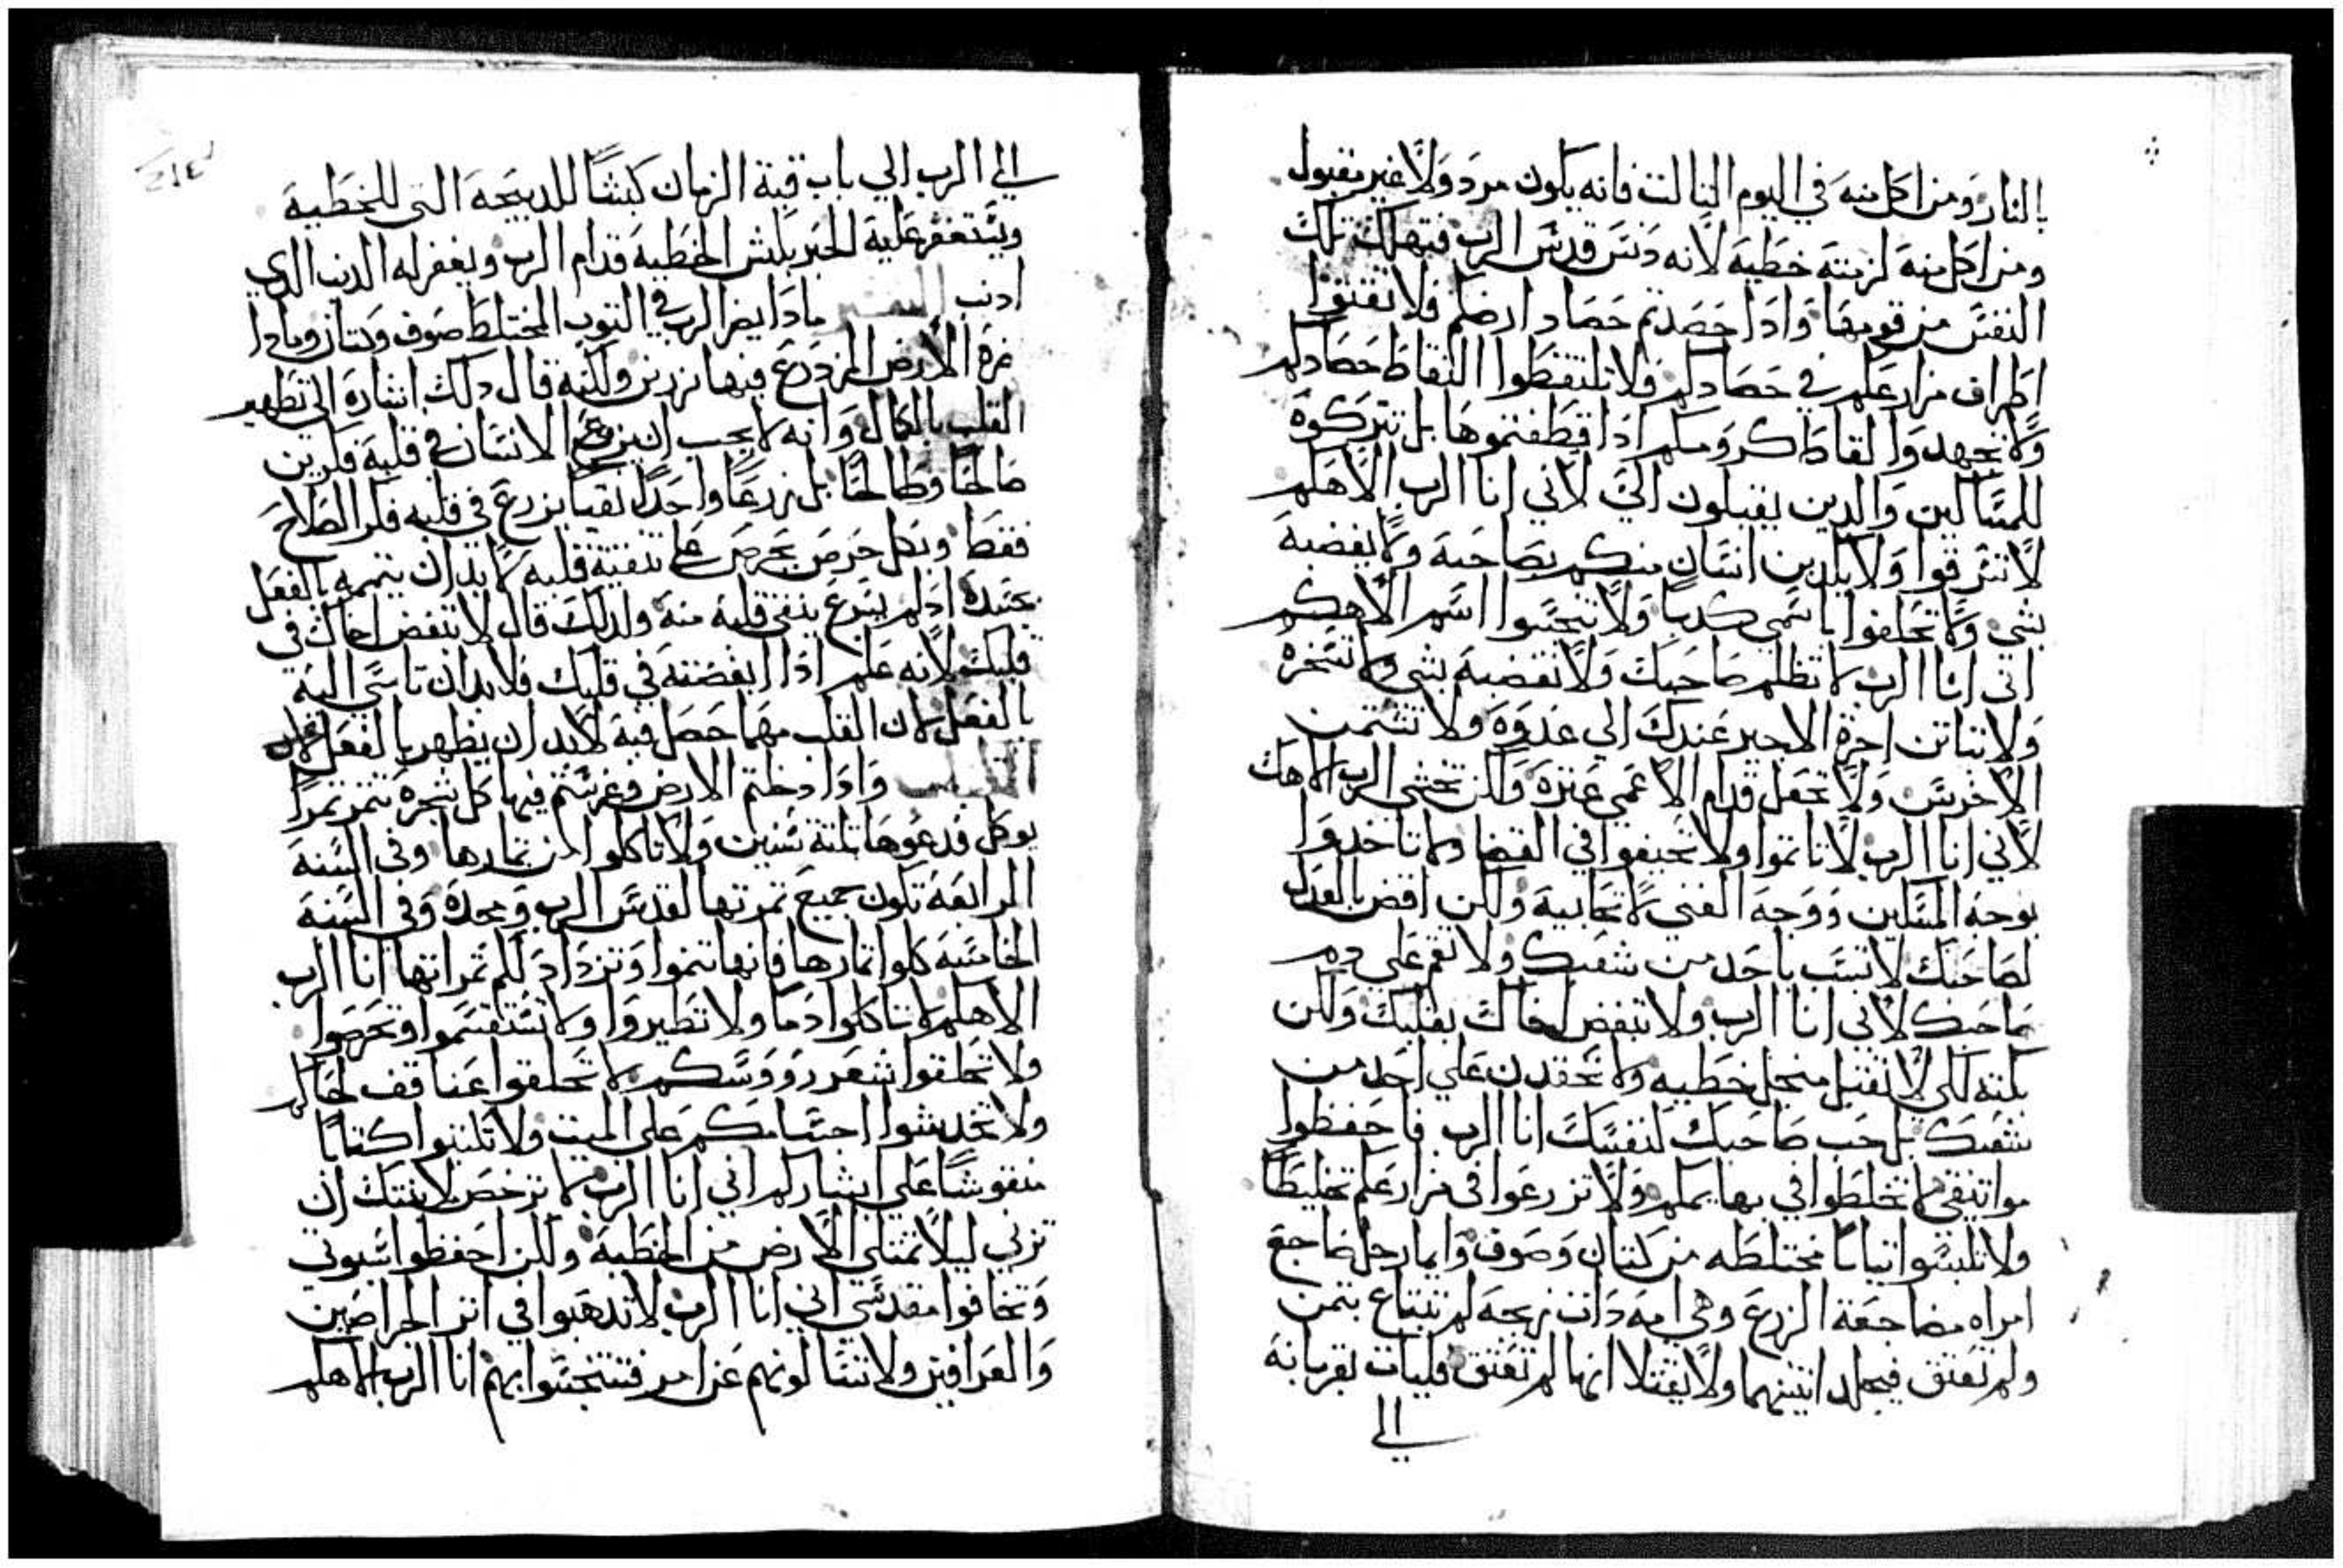 بالنار ومن اكل منه في اليوم الثالث فانه يكون مردولا غير مقبول
ومن اكل منه لزمته خطية لانه دنس قدس الرب فتهلك تلك
النفس من قومها وادا حصدتم حصاد ارضكم فلا تقتفوا
اطراف مزارعكم في حصادكم ولا تلتقطوا القاط حصادكم
ولا تجهدوا القاط كرومكم ادا قطفتموها بل تتركوه
للمساكين والدين يقبلون الي لاني انا الرب الاهكم
لا تسرقوا ولا يكدبن انسان منكم بصاحبه ولا يغضبه
بشي ولا تحلفوا باسمي كدبا ولا تنجسوا اسم الاهكم
اني انا الرب لا تظلم صاحبك ولا تغضبه بشي ولا تسخره
ولا تباتن اجرة الاجير عندك الي غدوه ولا تشتمن
الاخرس ولا تجعل قدام الاعمي عثره ولكن تخشي الرب الاهك
لاني انا الرب لا تاتموا ولا تحيفوا في القضا ولا تاخدوا
بوجه المسكين ووجه الغني لا تحابيه ولكن اقض بالعدل
لصاحبك لا تسب باحد من شعبك ولا تقم علي دم
صاحبك لاني انا الرب ولا تبغض اخاك بقلبك ولكن
بكته لكي لا تقبل من جل خطيه ولا تحقدن علي احد من
شعبك بل حب صاحبك لنفسك انا الرب فاحفظوا
مواتيقي لا تخلطوا في بهايمكم ولا تزرعوا في مزارعكم تخليطا
ولا تلبسوا تيابا مختلطه من كتان وصوف وايما رجل ضاجع
امراه مضاجعة الزرع وهي امه دات زيجه لم تبتاع بتمن
ولم تعتق فيجلد اتنينهما ولا يقتلا انها لم تعتق فليات بقربانه
الي
الي الرب الي باب قبة الزمان كبشا للدبيحه التي للخطيه
ويستغفر عليه الحبر بكبش الخطيه قدام الرب ويغفر له الدنب الدي
ادنب التفسير مادا يضر الرب في التوب المختلط صوف وكتان ومادا
ضره الارض المزدرع فيها زرعين ولكنه قال دلك اشارة الي تطهير
القلب بالكمال وانه لا يجب ان يزرع الانسان في قلبه فكرين
صالحا وطالحا بل زرعا واحدا نقيا يزرع في قلبه فكر الصلاح
فقط وبكل حرص يحرص علي تنقية قلبه لا بد ان يتممه بالفعل
بجسده ادا لم يسرع ينقي قلبه منه ولدلك قال لا تبغض اخاك في
قلبك لانه علم ادا ابغضته في قلبك فلا بد ان تاسي اليه
بالفعل لان القلب مهما حصل فيه لا بد ان يظهر بالفعل
وادا دخلتم الارض وغرستم فيها كل شجره تتمر تمرا
يوكل فدعوها تلتة سنين ولا تاكلوا من تمارها وفي السنه
الرابعه تكون جميع تمرتها لقدس الرب ومجده وفي السنه
الخامسه كلوا تمارها فانها تنموا وتزداد لكم تمراتها انا الرب
الاهكم لا تاكلوا دما ولا تطيروا ولا تستقسموا وتحرصوا
ولا تحلقوا شعر رووسكم لا تحلقوا عنافف لحاكم
ولا تخدشوا اجسامكم علي الميت ولا تكتبوا كتابا
منقوشا علي ابشاركم اني انا الرب لا ترخص لابنتك ان
تزني ليلا تمتلي الارض من الخطيه ولكن احفظوا سبوتي
وتخافوا مقدسي اني انا الرب لا تدهبوا في اتر الحراصين
والعرافين ولا تسالونهم عن امر فتتنجسوا بهم انا الرب الاهكم